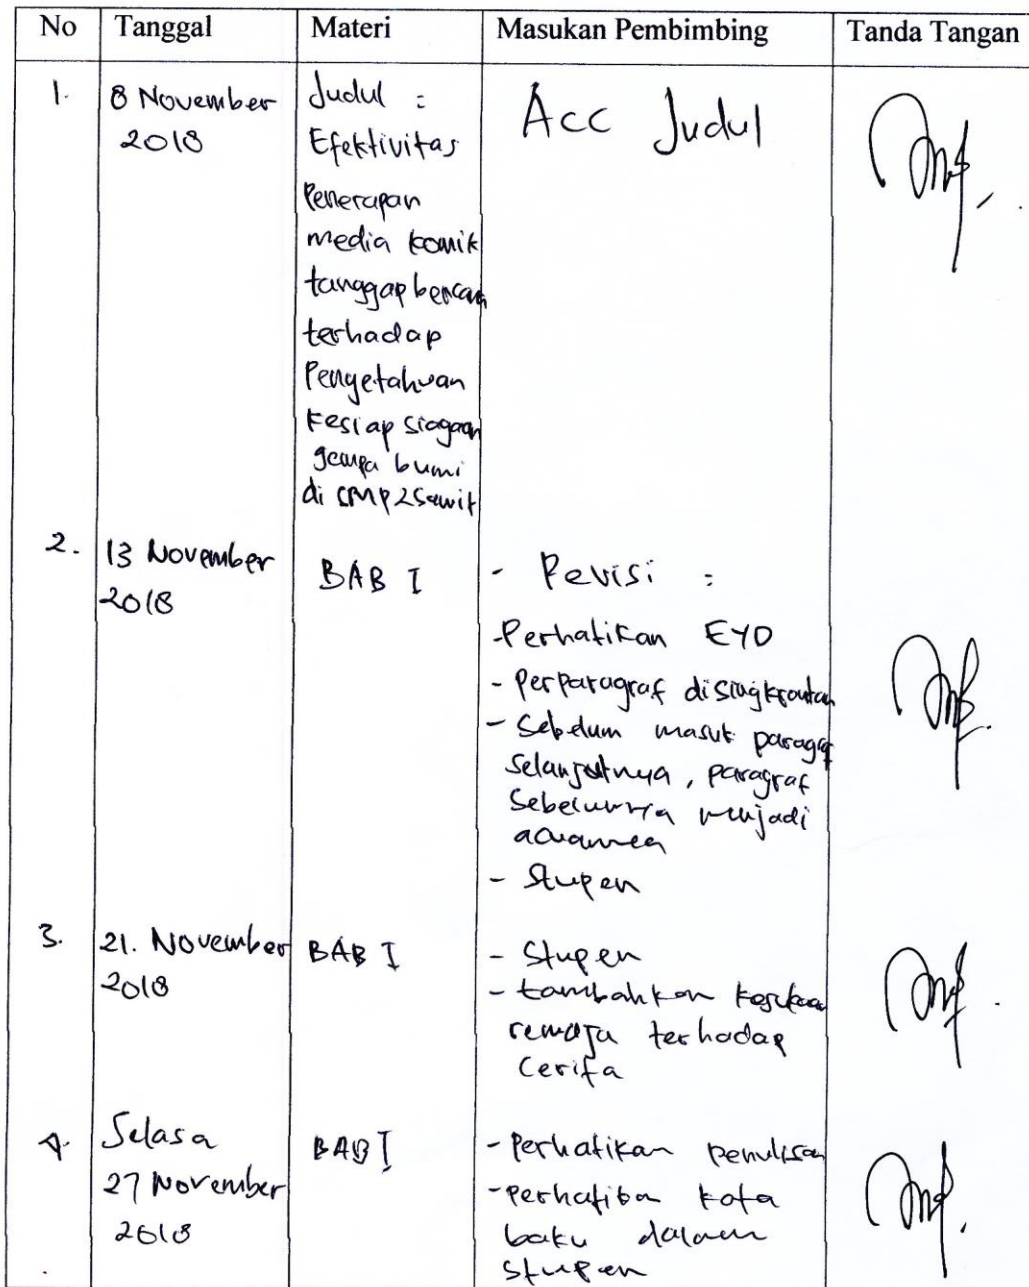 No Tanggal Materi Masukan Pembimbing Tanda Tangan
1. 8 November Judul : Acc Judul
2018 Efektivitas
Penerapan
media komik
tanggap bencana
terhadap
Pengetahuan
Kesiap siagaan
gempa bumi
di SMP 2 Sawit
2. 13 November BAB I - Revisi :
2018
- Perhatikan EYD
- Perparagraf disingkronkan
- Sebelum masuk paragraf
selanjutnya, paragraf
sebelumnya menjadi
- Stupen
3. 21. November BAB I - Stupen
2018 - tambahkan kesukaan
remaja terhadap
Cerita
4. Selasa BAB I - Perhatikan penulisan
27 November - perhatikan kata
2018 baku dalam
stupen